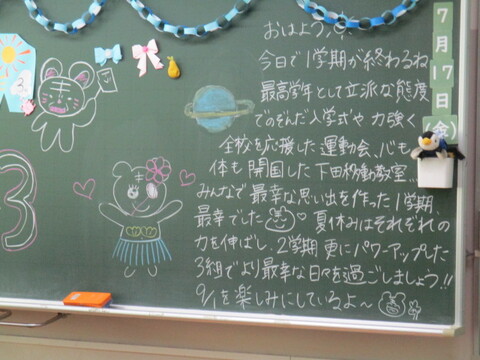 おはよう
今日で1学期が終わるね
最高学年として立派な態度
でのぞんだ入学式や 力強く
全校を応援した運動会、心も
体も開国した下田移動教室…
みんなで最幸な思い出を作った1学期、
最幸でした 夏休みはそれぞれの
力を伸ばし、2学期更にパワーアップした
3組でより最幸な日々を過ごしましょう!!
9/1を楽しみにしているよ〜
7月17日(金)
3